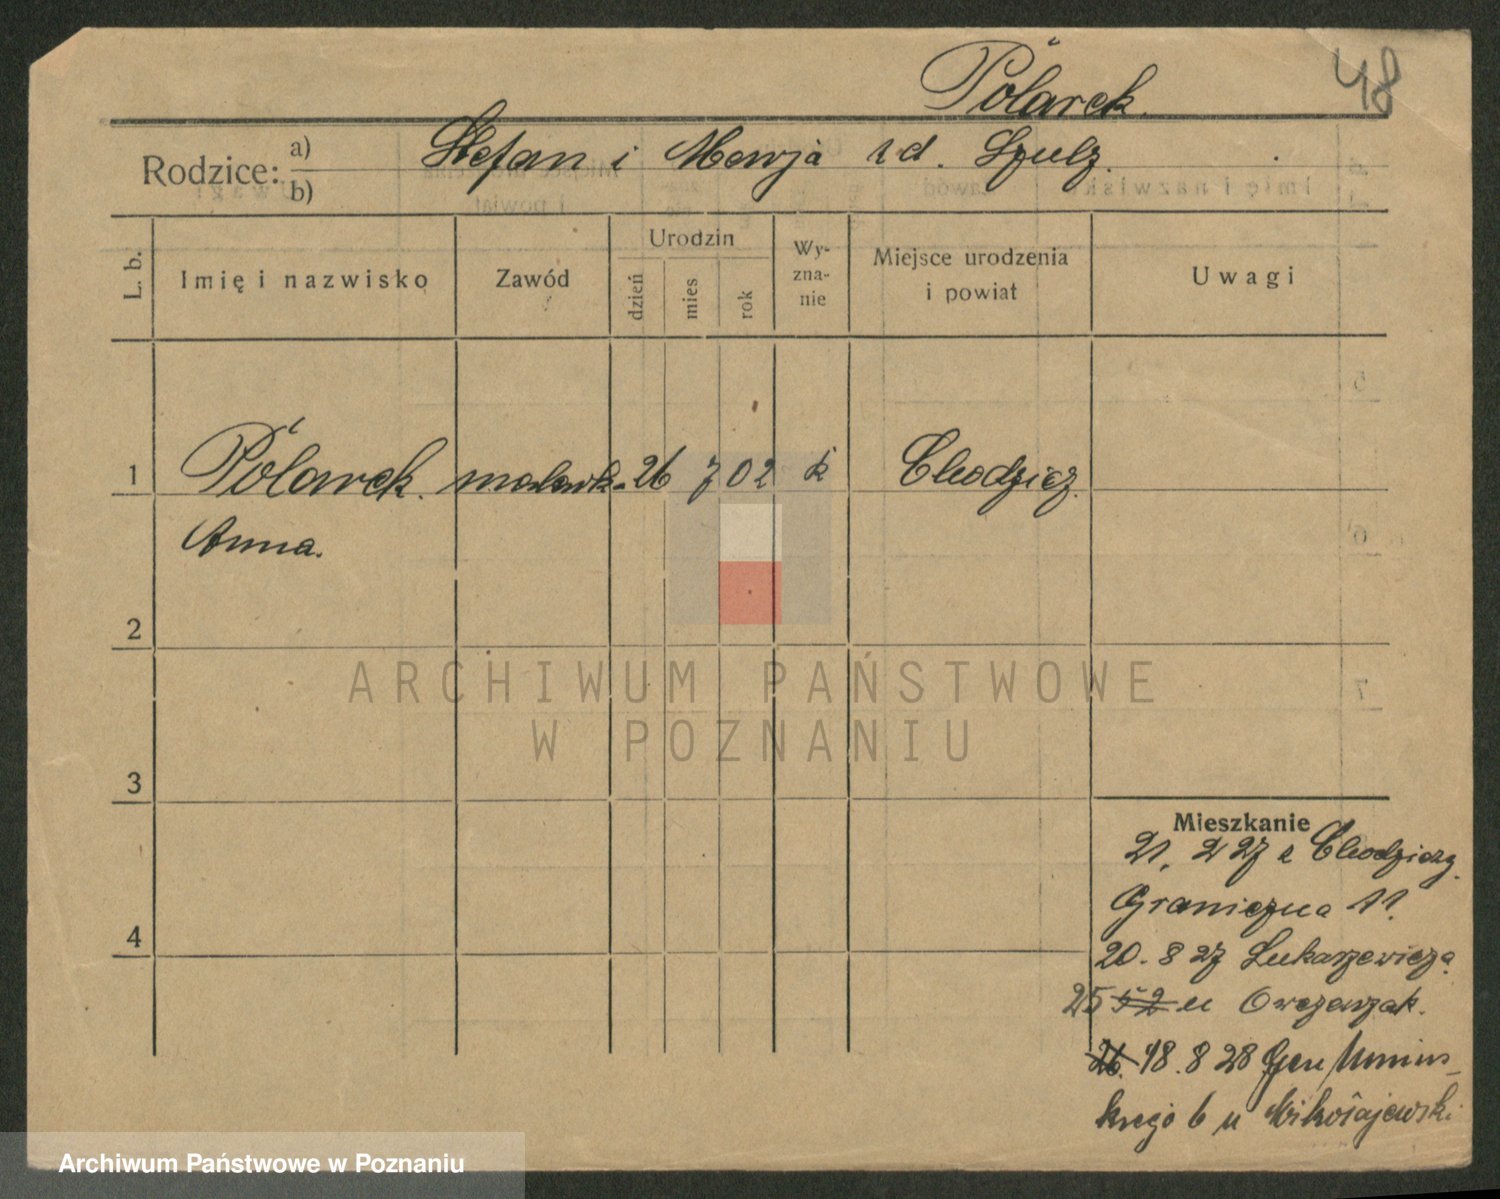 Polarek.
48
Rodzice: a) Stefan i Marja zd. Szulz.
b)
L. b.
Imię i nazwisko
Zawód
Urodzin
dzień
mies
rok
Wy-
zna-
nie
Miejsce urodzenia
i powiat
Uwagi
1 Polarek. 26 7 02 k Chodzież.
Anna.
2
3
4
ARCHIWUM PAŃSTWOWE
W POZNANIU
Mieszkanie
21. 2 27 z Chodzieży.
Graniczna 11.
20. 8 27 Łukaszewicza
25 52 u Owczarzak.
26. 18. 8 28 Gen Umins-
kiego 6 u Mikołajewski
Archiwum Państwowe w Poznaniu